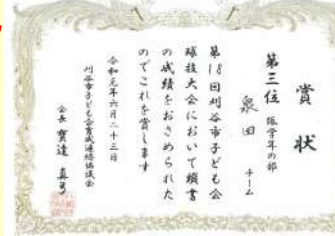 賞状
第三位 低学年の部
泉田 チーム
第18回刈谷市子ども会
球技大会において頭書
の成績をおさめられた
のでこれを賞します
令和元年六月二十三日
刈谷市子ども会育成連絡協議会
会長